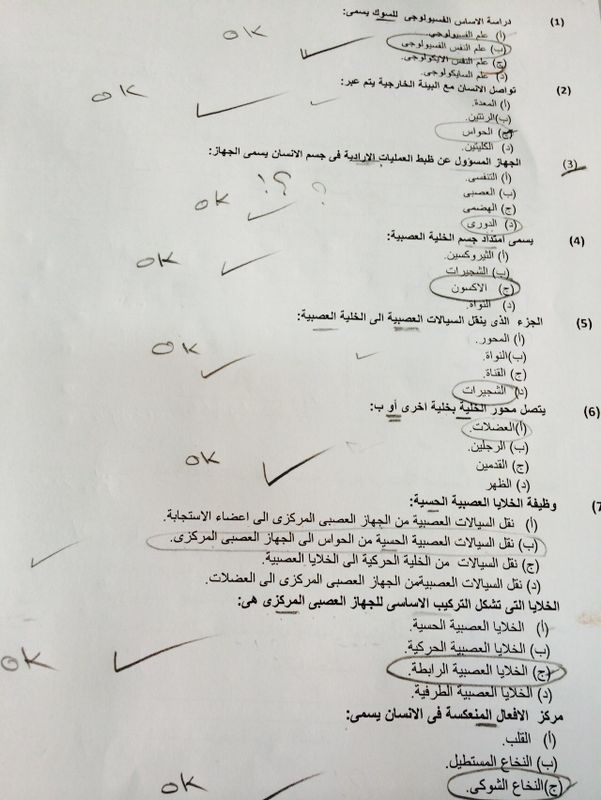 (1) دراسة الاساس الفسيولوجى للسوك يسمى:
أ) علم الفسيولوجى.
ب) علم النفس الفسيولوجى
ج) علم النفس الايكولوجى.
د) علم السايكولوجى.
ok
(2) تواصل الانسان مع البيئة الخارجية يتم عبر:
أ) المعدة.
ب) الرنتين.
ج) الحواس
د) الكليتين.
ok
(3) الجهاز المسؤول عن ظبط العمليات الارادية فى جسم الانسان يسمى الجهاز:
أ) التنفسى.
ب) العصبى
ج) الهضمى
د) الدورى
ok !? ?
(4) يسمى امتداد جسم الخلية العصبية:
أ) الثيروكسين.
ب) الشجيرات
ج) الاكسون
د) النواة.
ok
(5) الجزء الذى ينقل السيالات العصبية الى الخلية العصبية:
(أ) المحور.
(ب) النواة.
(ج) القناة.
(د) الشجيرات
ok
(6) يتصل محور الخلية بخلية اخرى أو ب:
(أ) العضلات.
(ب) الرجلين.
(ج) القدمين
(د) الظهر
ok
(7 وظيفة الخلايا العصبية الحسية:
(أ) نقل السيالات العصبية من الجهاز العصبى المركزى الى اعضاء الاستجابة.
(ب) نقل السيالات العصبية الحسية من الحواس الى الجهاز العصبى المركزى.
(ج) نقل السيالات من الخلية الحركية الى الخلايا العصبية.
(د) نقل السيالات العصبيةمن الجهاز العصبى المركزى الى العضلات.
الخلايا التى تشكل التركيب الاساسى للجهاز العصبى المركزى هى:
(أ) الخلايا العصبية الحسية.
(ب) الخلايا العصبية الحركية.
(ج) الخلايا العصبية الرابطة.
(د) الخلايا العصبية الطرفية.
ok
مركز الافعال المنعكسة فى الانسان يسمى:
(أ) القلب.
(ب) النخاع المستطيل.
(ج) النخاع الشوكى.
ok